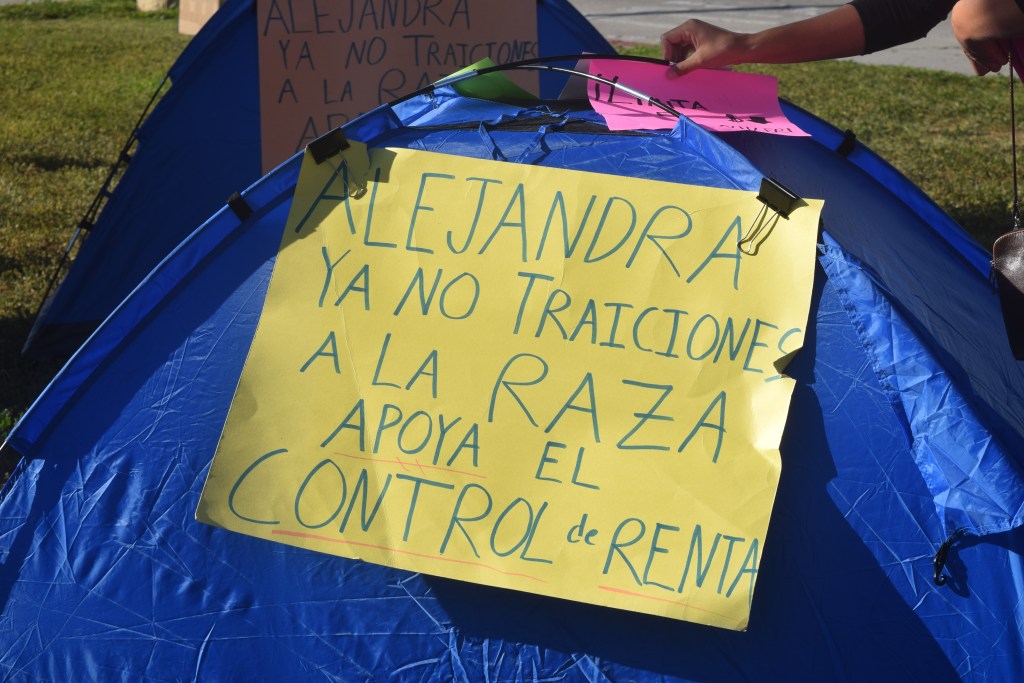 ALEJANDRA
YA NO TRAICIONES
A LA RAZA
ALEJANDRA
YA NO TRAICIONES
A LA RAZA
APOYA EL
CONTROL de RENTA